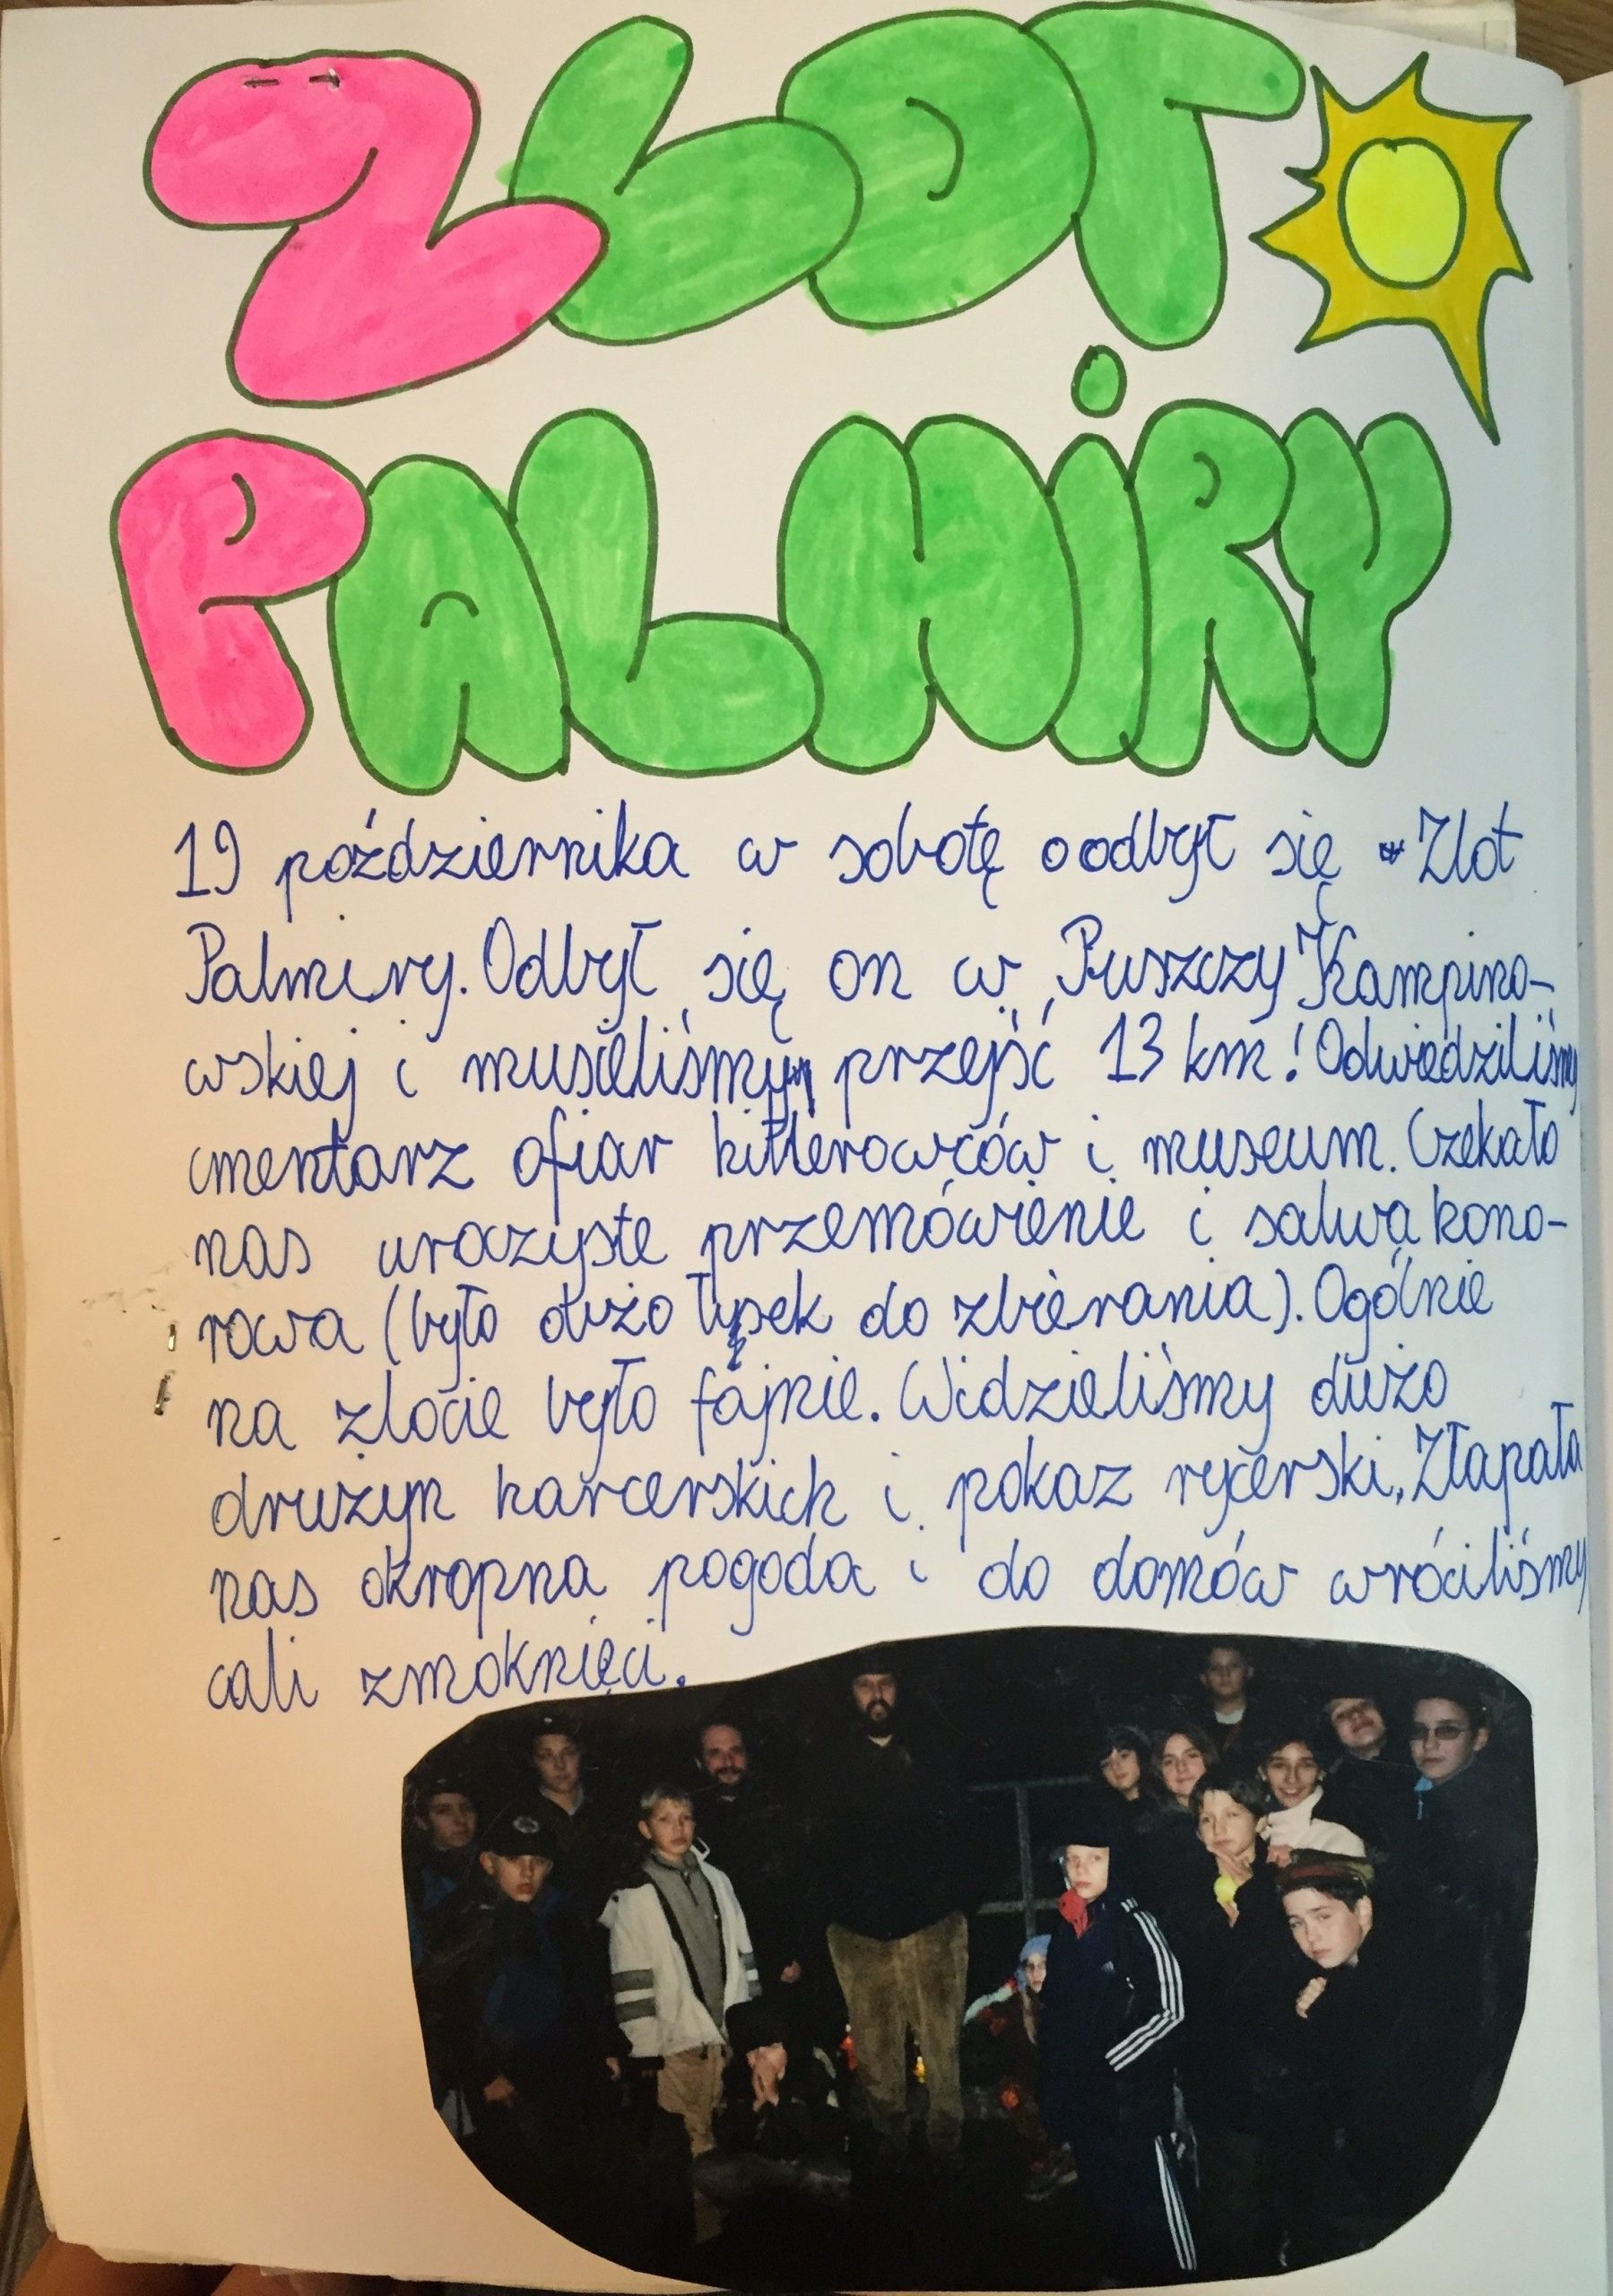 ZLOT
PALMiRY
19 października w sobotę oodbył się Zlot
Palmiry. Odbył się on w Puszczy Kampino-
wskiej i musieliśmy przejść 13 km! Odwiedziliśmy
cmentarz ofiar hitlerowców i museum. Czekało
nas uroczyste przemówienie i salwa hono-
rowa (było dużo łusek do zbierania). Ogólnie
na zlocie było fajnie. Widzieliśmy dużo
drużyn harcerskich i pokaz rycerski. Złapała
nas okropna pogoda i do domów wróciliśmy
cali zmoknięci.